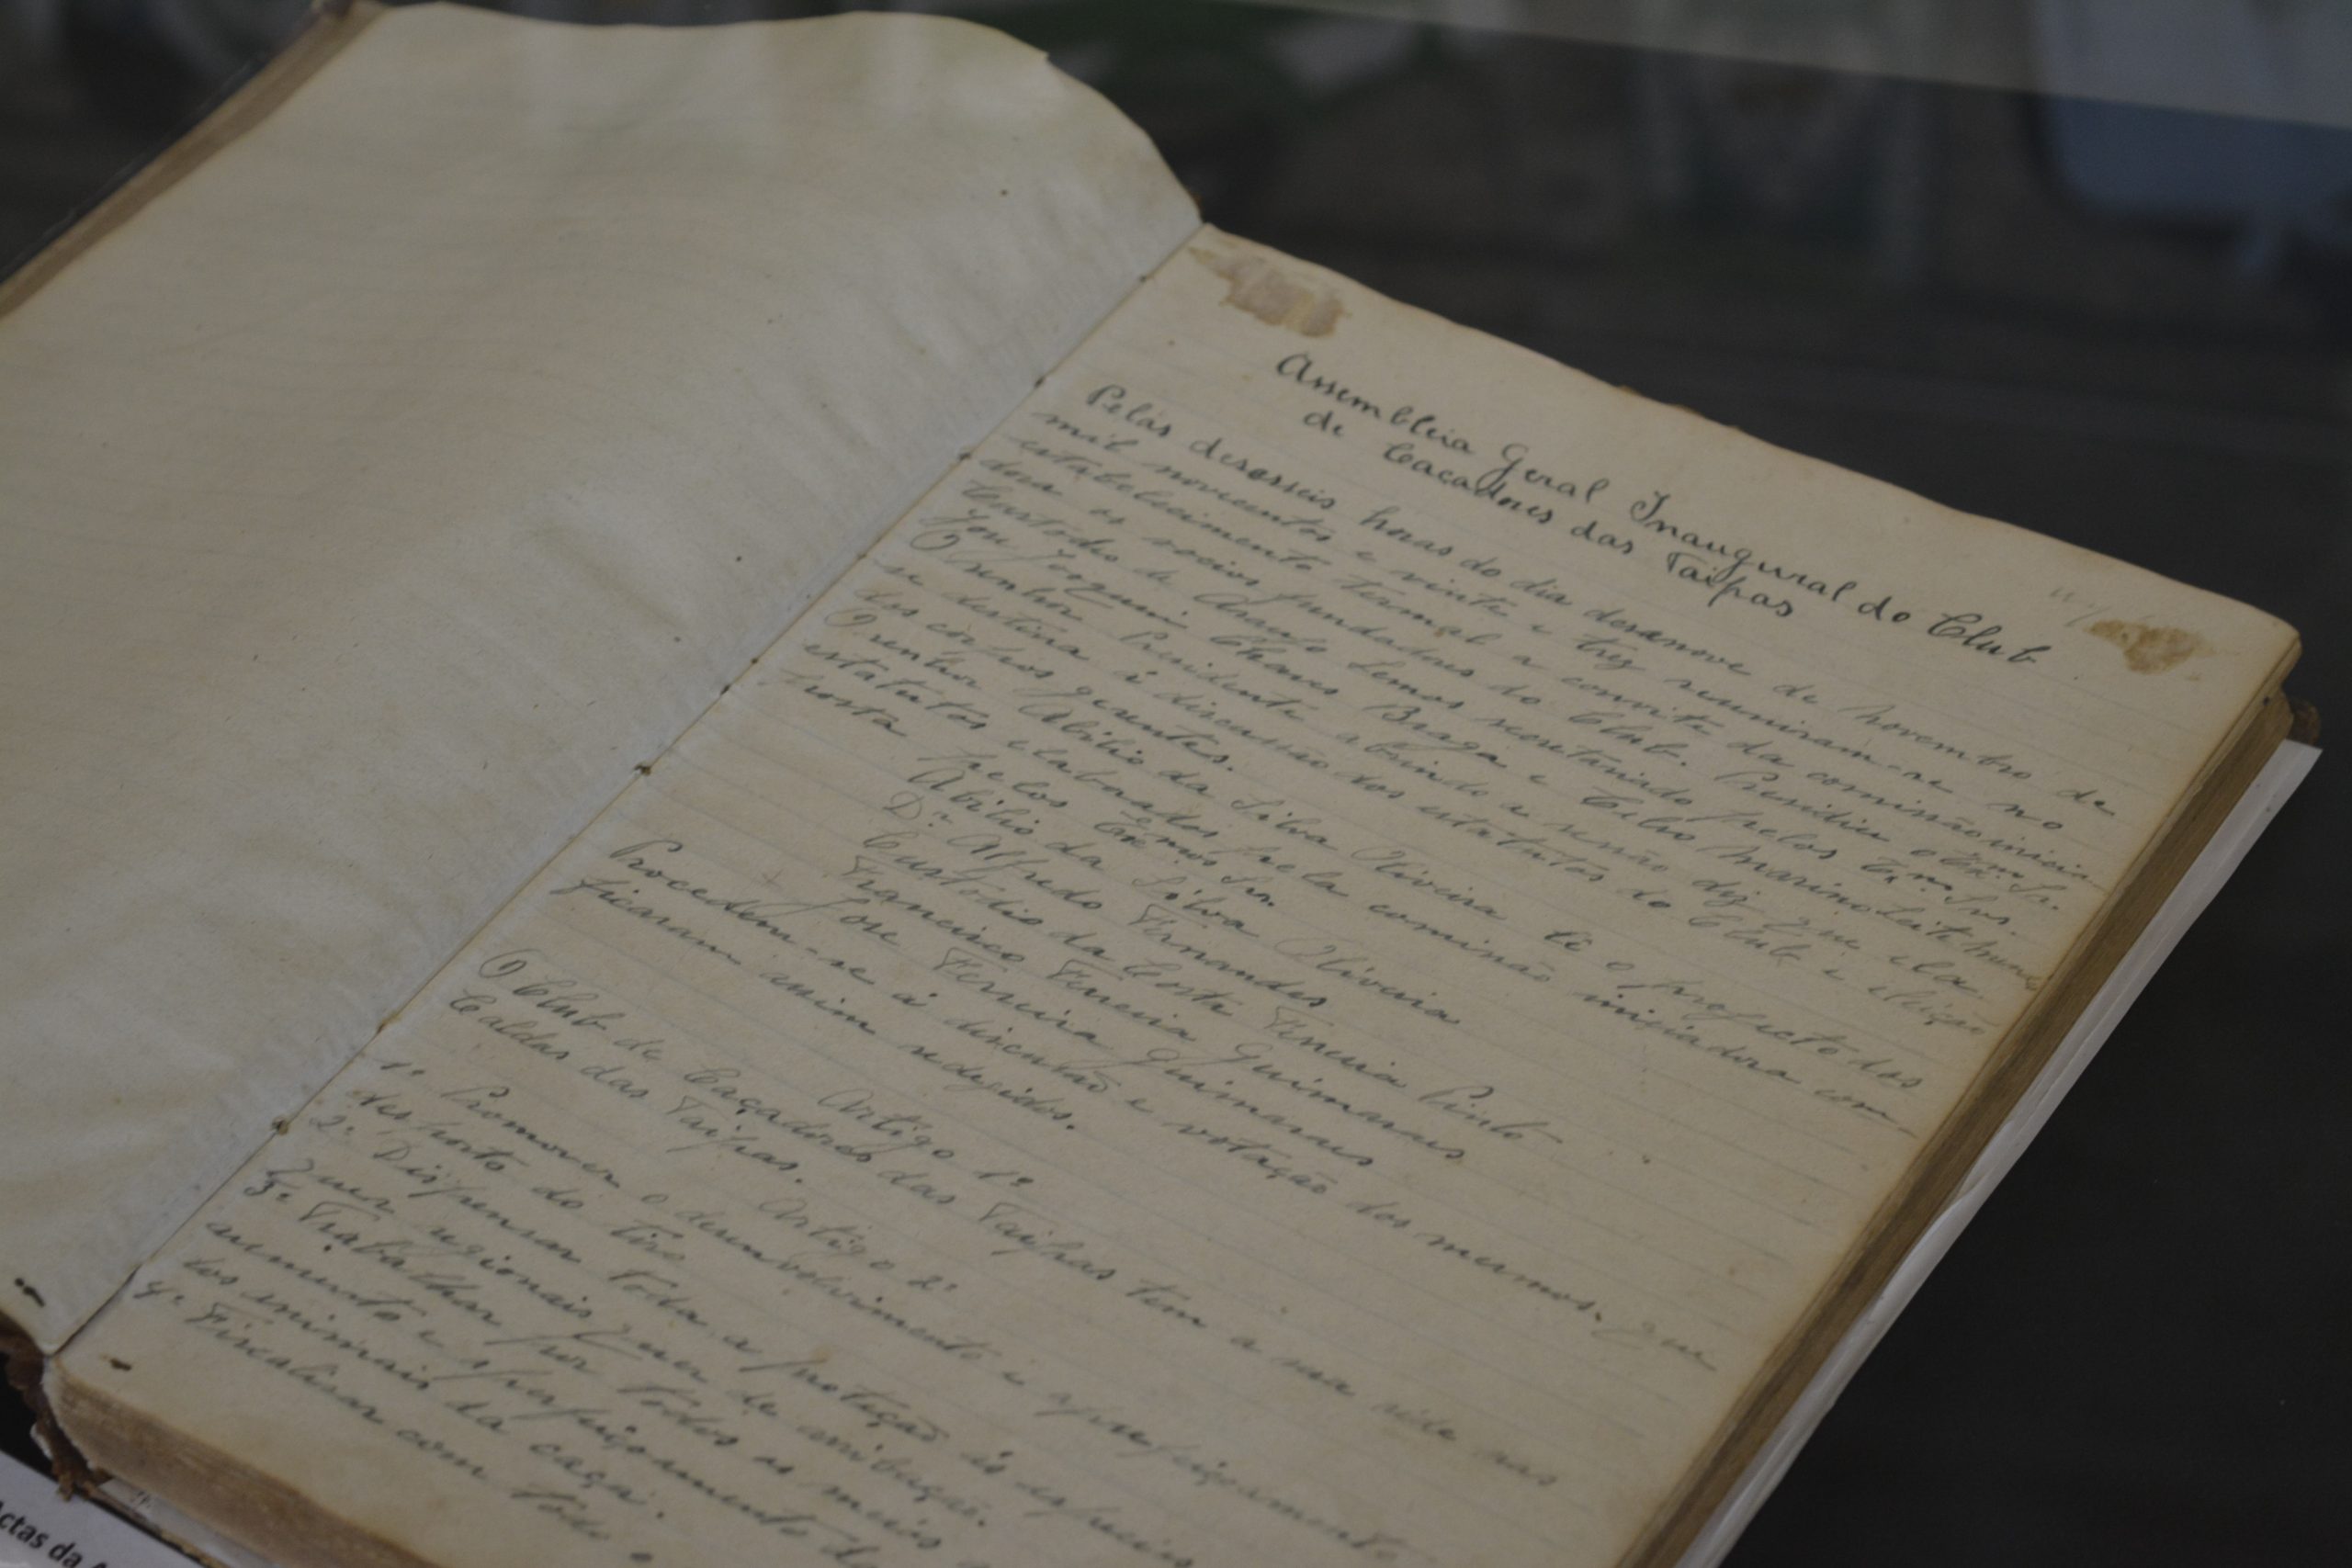 Assembleia Geral Inaugural do Club
de Caçadores das Taipas
Pelas desasseis horas do dia desanove de novembro de
mil novecentos e vinte e trez reuniram-se no
estabelecimento termal a convite da comissão inicia-
dora os socios fundadores do Club. Presidiu o Exmo. Sr.
Custodio de Araujo Lemos secretariado pelos Exmos. Srs.
José Joaquim Chaves Braga e Celso Marino Leite Nunes
O senhor Presidente abrindo a sessão diz que ela
se destina á discussão dos estatutos do Club e eleição
dos corpos gerentes.
O senhor Abilio da Silva Oliveira lê o projecto dos
estatutos elaborados pela comissão iniciadora com-
posta pelos Exmos Srs.
Abilio da Silva Oliveira
Dr. Alfredo Fernandes
Custodio da Costa Ferreira Pinto
Francisco Ferreira Guimarães
José Ferreira Guimarães
Procedem-se á discussão e votação dos mesmos. que
ficaram assim redigidos.
Artigo 1º
O Club de Caçadores das Taipas tem a sua séde nas
Caldas das Taipas.
Artigo 2º
1º Promover o desenvolvimento e aperfeiçoamento
desporto do tiro
2º Dispensar toda a proteção ás especies
quer regionais quer de arribação.
3º Trabalhar por todos os meios
aumento e aperfeiçoamento de
dos animais da caça.
4º Fiscalisar com todo o
Actas da